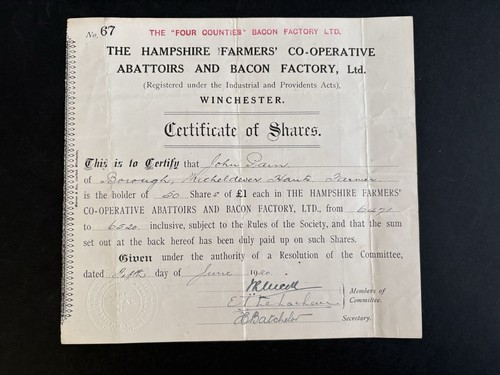 No. 67
THE "FOUR COUNTIES" BACON FACTORY LTD.
THE HAMPSHIRE FARMERS' CO-OPERATIVE
ABATTOIRS AND BACON FACTORY, Ltd.
(Registered under the Industrial and Providents Acts),
WINCHESTER.
Certificate of Shares.
This is to Certify that John Pain
of Borough, Micheldever Hants Farmer
is the holder of 50 Shares of £1 each in THE HAMPSHIRE FARMERS'
CO-OPERATIVE ABATTOIRS AND BACON FACTORY, LTD., from 6471
to 6520 inclusive, subject to the Rules of the Society, and that the sum
set out at the back hereof has been duly paid up on such Shares.
Given under the authority of a Resolution of the Committee,
dated Fifth day of June 1920
Members of
Committee.
Batchelor Secretary.